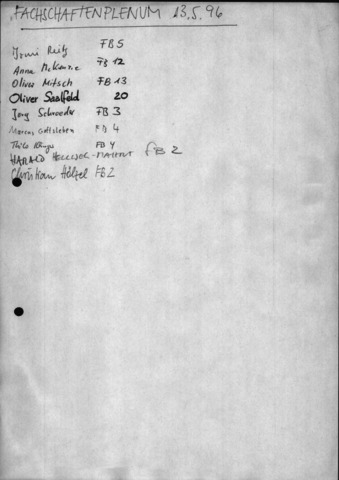 FACHSCHAFTENPLENUM 13.5.96
FB5
Anna McKenzie FB 12
Oliver Mitsch FB 13
Oliver Saalfeld 20
Jörg Schroeder FB 3
Marcus Gottsleben FB 4
Thilo FB 4
HARALD FB 2
Christian Hölzel FB2